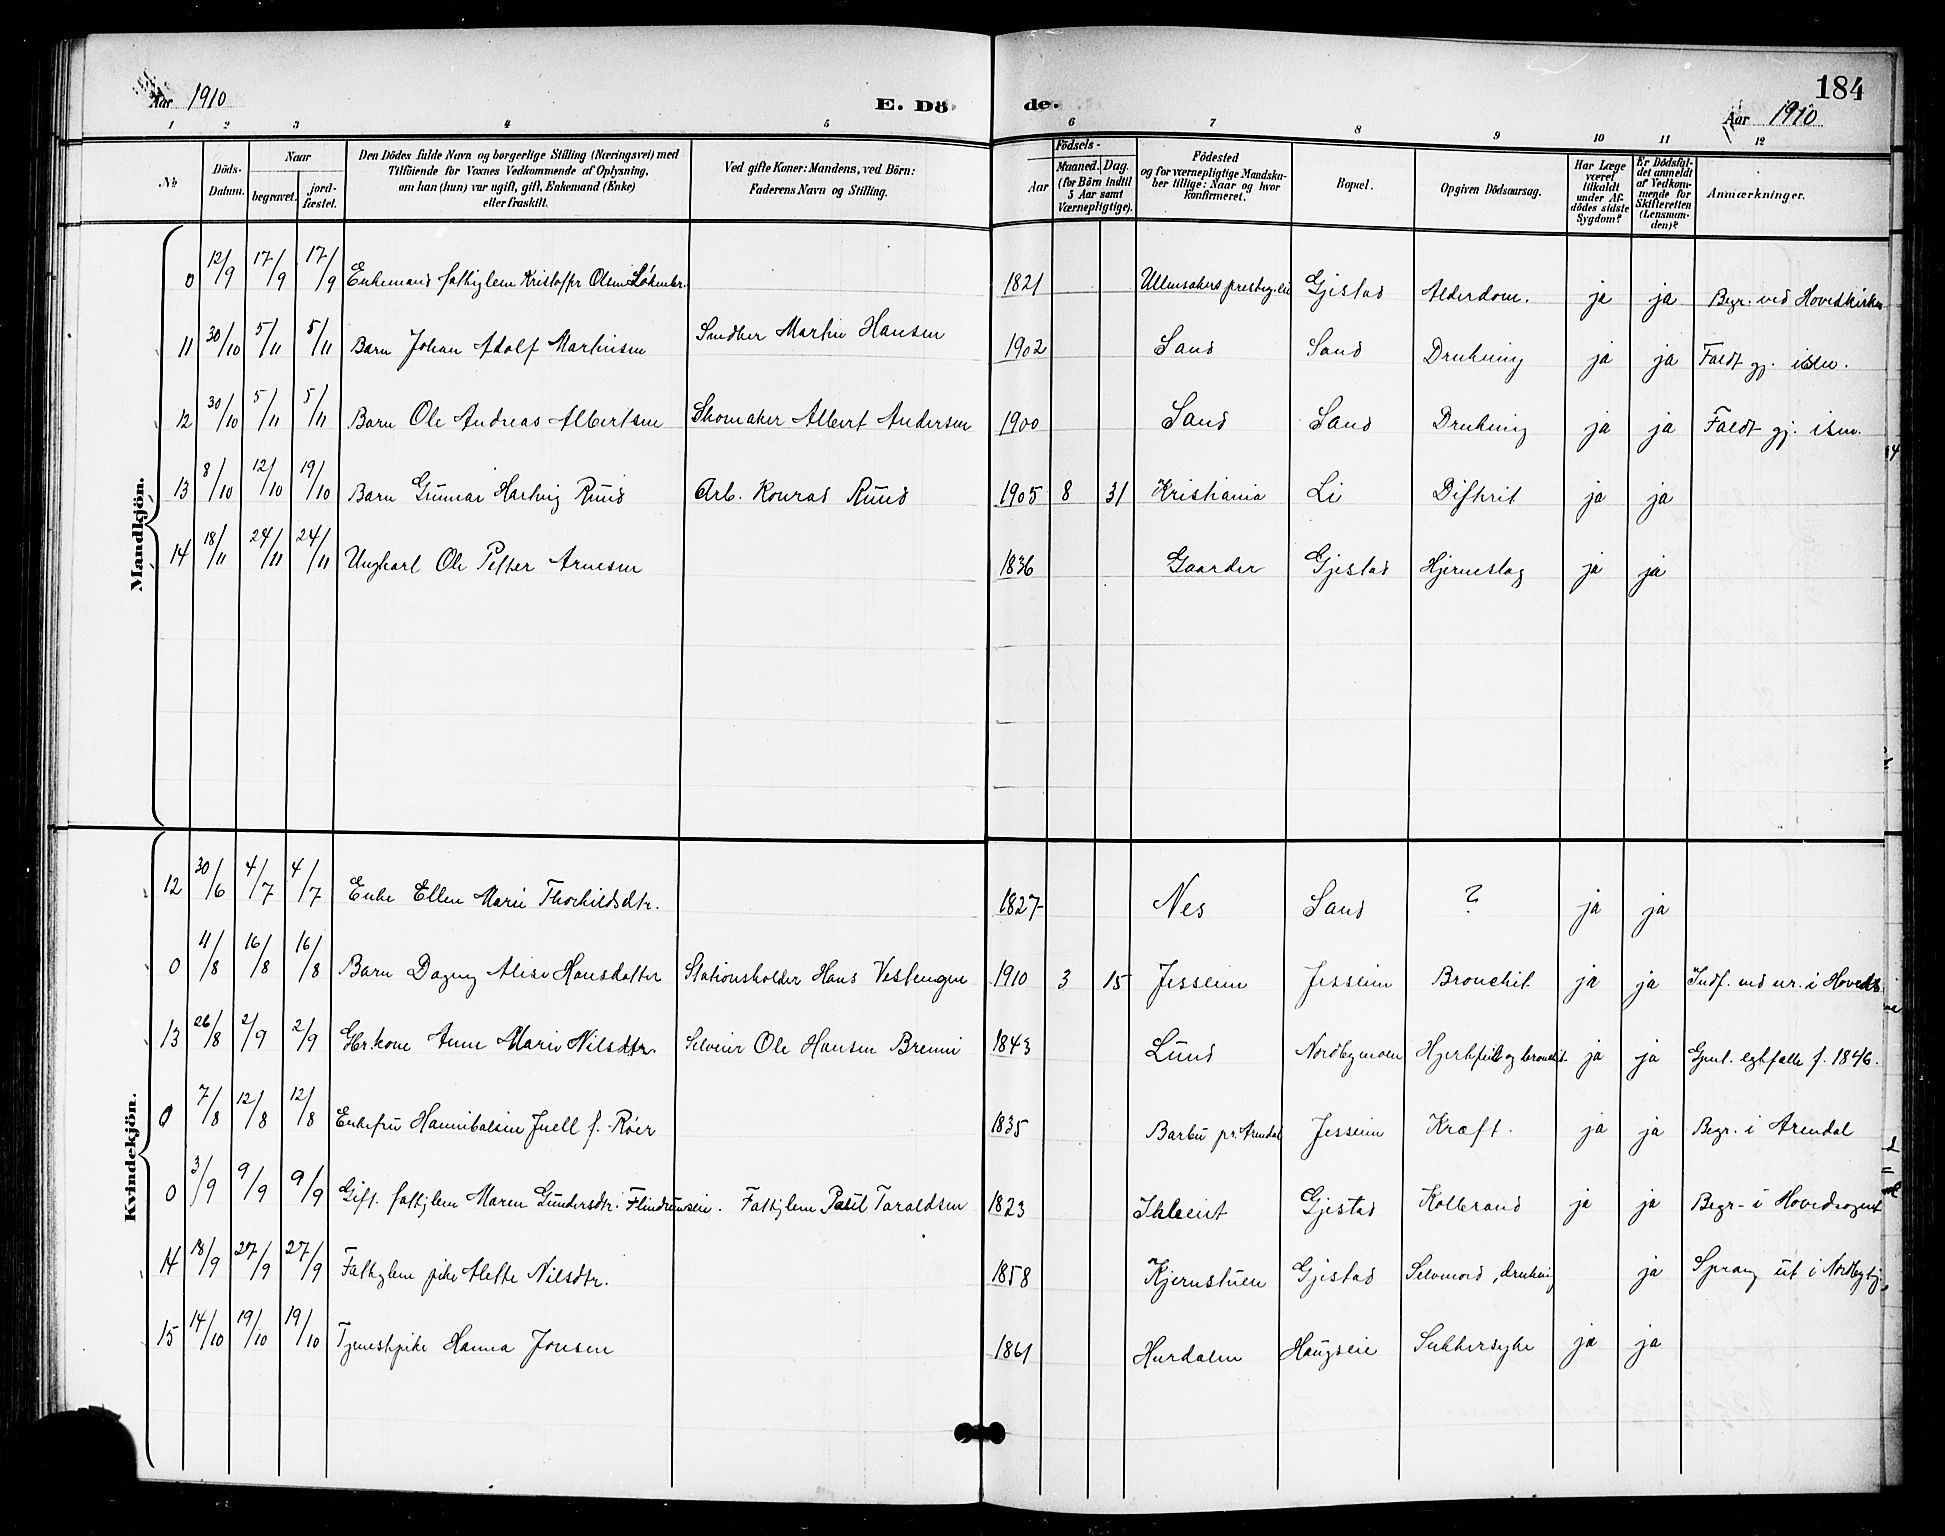 Aar 1910
E. Dö
de.
184
Aar 1910
1 2 3 4 5 6 7 8 9 10 11 12
Nr
Döds-Datum.
Naar
begravet.
jord-fæstet.
Den Dödes fulde Navn og borgerlige Stilling (Næringsvei) med
Tilföiende for Voxnes Vedkommende af Oplysning,
om han (hun) var ugift, gift, Enkemand (Enke)
eller fraskilt.
Ved gifte Koner: Mandens, ved Börn:
Faderens Navn og Stilling.
Födsels-
Aar
Maaned. Dag.
(for Börn indtil
5 Aar samt
Værnepligtige).
Födested
og for værnepligtige Mandska-
ber tillige: Naar og hvor
konfirmeret.
Bopæl.
Opgiven Dödsaarsag.
Har Læge
været
tilkaldt
under Af-
dödes sidste
Sygdom?
Er Dödsfal-
det anmeldt
af Vedkom-
mende for
Skifteretten
(Lensman-
den)?
Anmærkninger.
Mandkjön.
0 12/9 17/9 17/9 Enkemand fattiglem Kristoffer Olsen 1821 Ullensakers Gjestad Alderdom. ja ja Begr. ved Hovedkirken
11 30/10 5/11 5/11 Barn Johan Adolf Martinsen Martin Hansen 1902 Sand Sand Drukning ja ja Faldt gj. isen.
12 30/10 5/11 5/11 Barn Ole Andreas Albertsen Skomaker Albert Andersen 1900 Sand Sand Drukning ja ja Faldt gj. isen.
13 8/10 12/10 19/10 Barn Gunnar Hartvig Ruud Arb. Konrad Ruud 1905 8 31 Kristiania Li Difterit ja ja
14 18/11 24/11 24/11 Ungkarl Ole Petter Arnesen 1836 Gaarder Gjestad Hjerneslag ja ja
Kvindekjön.
12 30/6 4/7 4/7 Enke Ellen Marie Thorkildsdtr. 1827 Nes Sand ? ja ja
0 11/8 16/8 16/8 Barn Dagny Alise Hansdatter Stationsholder Hans Vestengen 1910 3 15 Jesseim Jesseim Bronchit ja ja Indf. med nr. i Hoveds.
13 26/8 2/9 2/9 Gbr.kone Anne Marie Nilsdtr. Selveier Ole Hansen Brenni 1843 Lund Nordbymoen Hjertefeil og bronchit ja ja f. 1846.
0 7/8 12/8 12/8 Enkefru Hannibalsine Juell f. Röer 1835 Barbu pr. Arendal Jesseim Kræft. ja ja Begr. i Arendal
0 3/9 9/9 9/9 Gift. fattiglem Maren Gundersdtr. Flindrumseie. Fattiglem Paul Taraldsen 1823 Gjestad Kolbrand ja ja Begr. i Hovedsognet
14 18/9 27/9 27/9 Fattiglem pike Alette Nilsdtr. 1858 Kjernstuen Gjestad Selvmord, drukning ja Sprang ut i Nordbytj.
15 14/10 19/10 19/10 Tjenestpike Hanna Jonsen 1861 Hurdalen Haugseie Sukkersyke ja ja